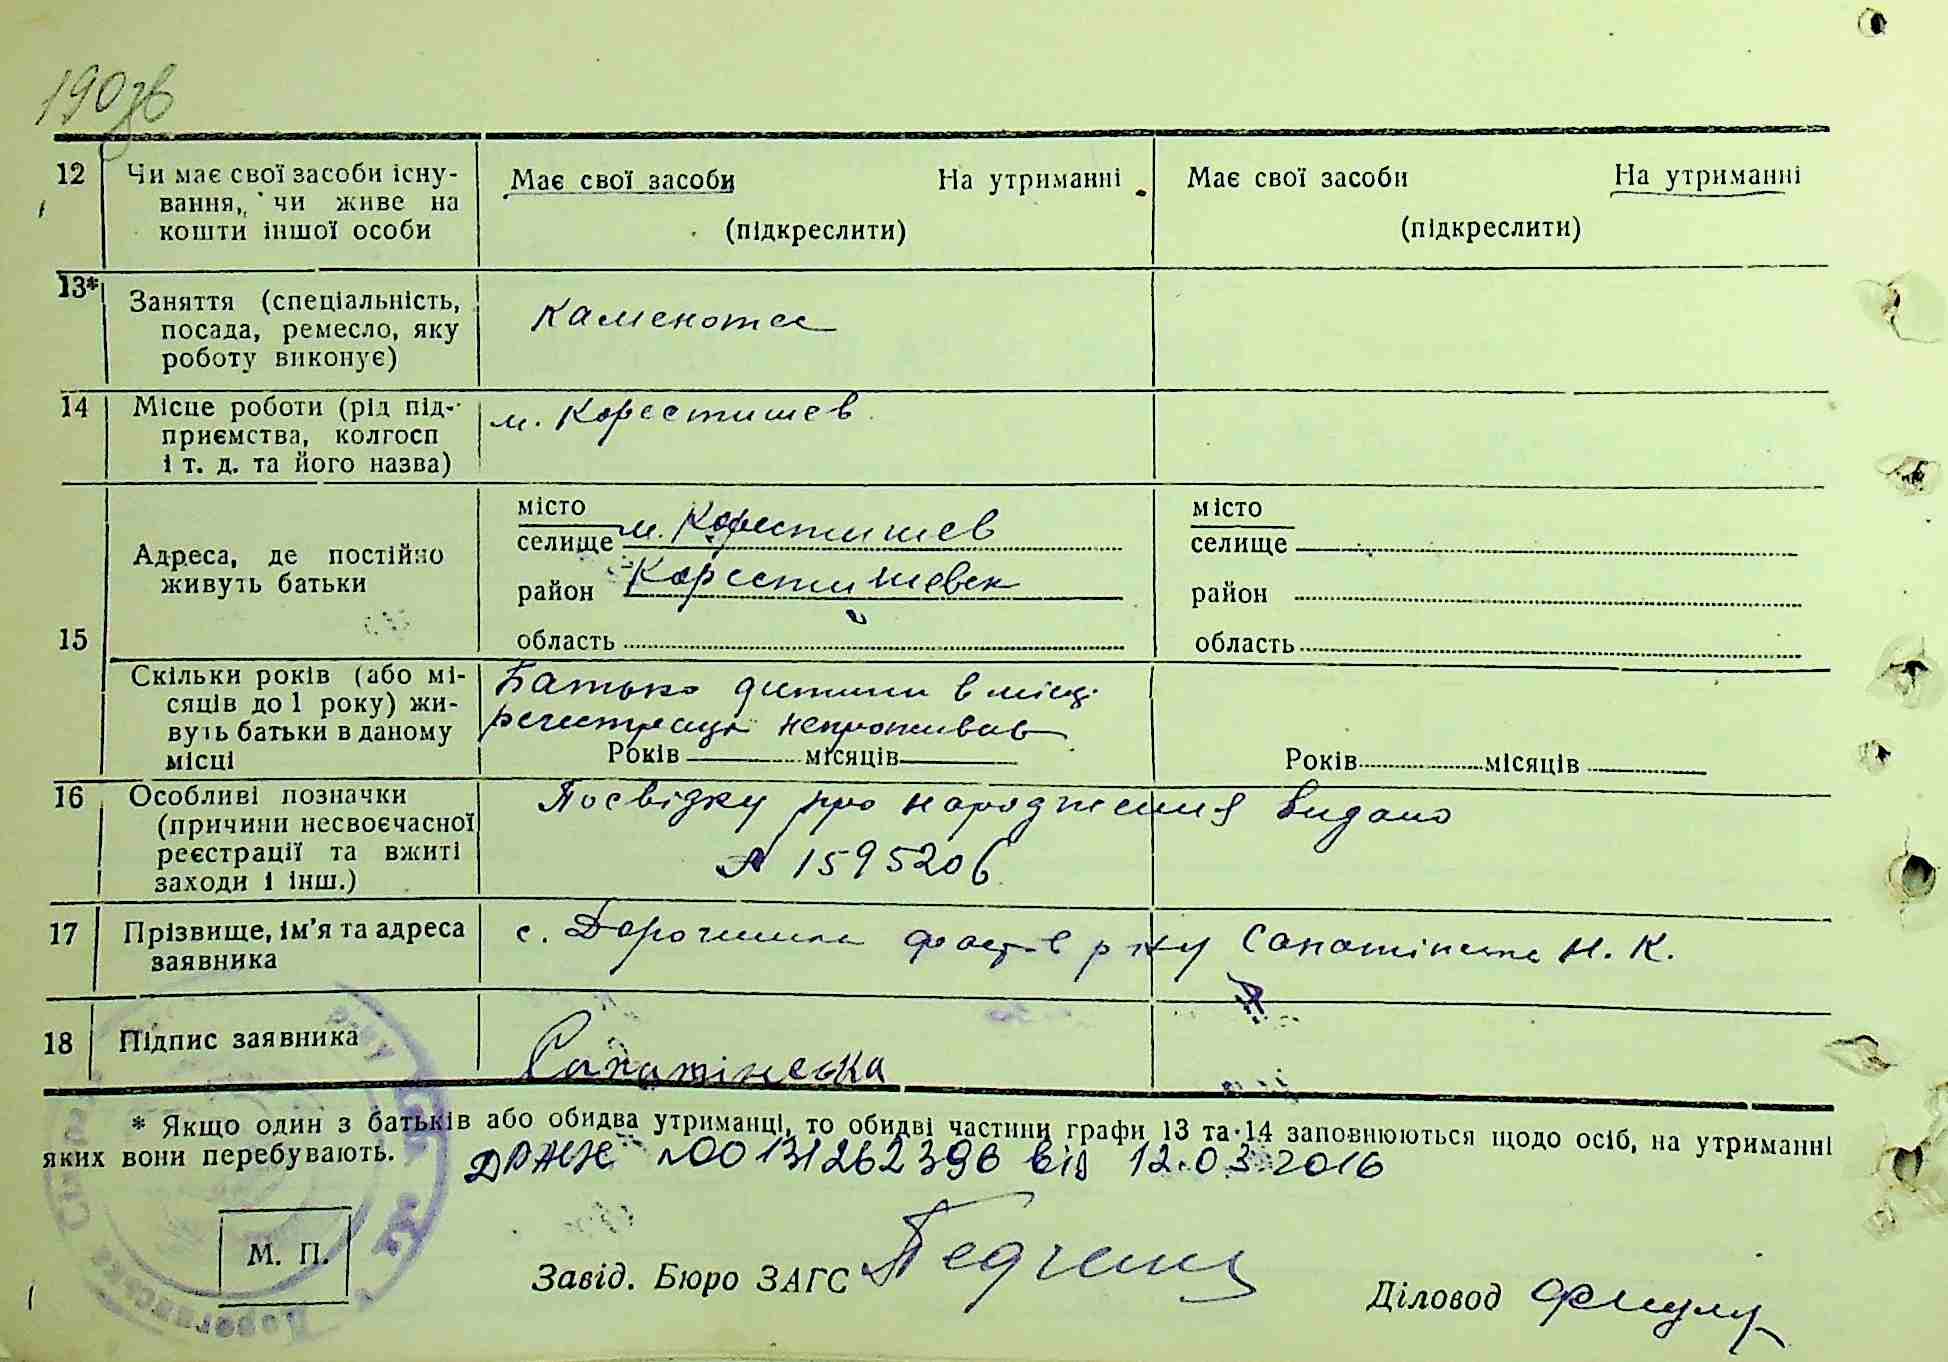 190зв
12 Чи має свої засоби існу-
вання, чи живе на
кошти іншої особи
Має свої засоби На утриманні
(підкреслити)
Має свої засоби На утриманні
(підкреслити)
13* Заняття (спеціальність,
посада, ремесло, яку
роботу виконує)
Каменотес
14 Місце роботи (рід під-
приємства, колгосп
і т. д. та його назва)
м. Коростишев
15 Адреса, де постійно
живуть батьки
місто
селище м. Коростишев
район Коростишевск
область
місто
селище
район
область
Скільки років (або мі-
сяців до 1 року) жи-
вуть батьки в даному
місці
Батько дитини в місці
регестрації непроживав
Років місяців
Років місяців
16 Особливі позначки
(причини несвоєчасної
реєстрації та вжиті
заходи і інш.)
Посвідку про народження видано
№ 1595206
17 Прізвище, ім'я та адреса
заявника
с. Дорогинка Фастів р ну Сапатінська Н. К.
18 Підпис заявника
Сапатінська
* Якщо один з батьків або обидва утриманці, то обидві частини графи 13 та 14 заповнюються щодо осіб, на утриманні
яких вони перебувають.
ДРАЦС №00131262396 від 12.03.2016
М. П.
Завід. Бюро ЗАГС
Діловод